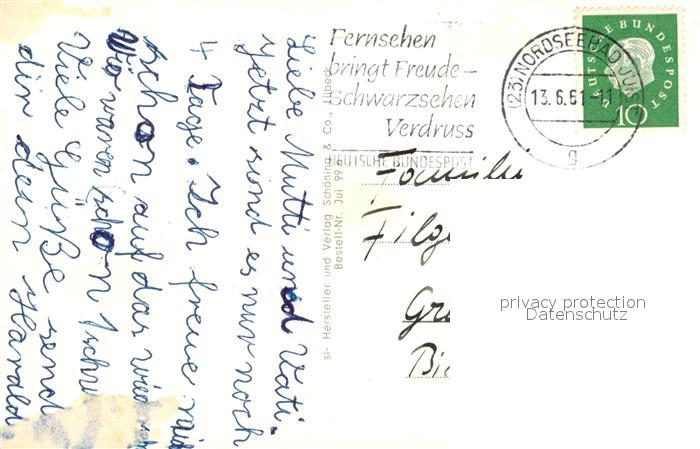 Liebe Mutti und Vati.
jetzt sind es nur noch
4 Tage. Ich freue mich
schon auf das
Wir waren schon 1
Viele Grüße send
dir dein Harald
si- Hersteller und Verlag Schöning & Co., Lübeck
Bestell-Nr. Jul 99
Fernsehen
bringt Freude-
Schwarzsehen
Verdruss
DEUTSCHE BUNDESPOST
(23) NORDSEEBAD JUIST
13.6.61-11
g
DEUTSCHE BUNDESPOST
10
Familie
Filg
Gr
Bi
privacy protection
Datenschutz